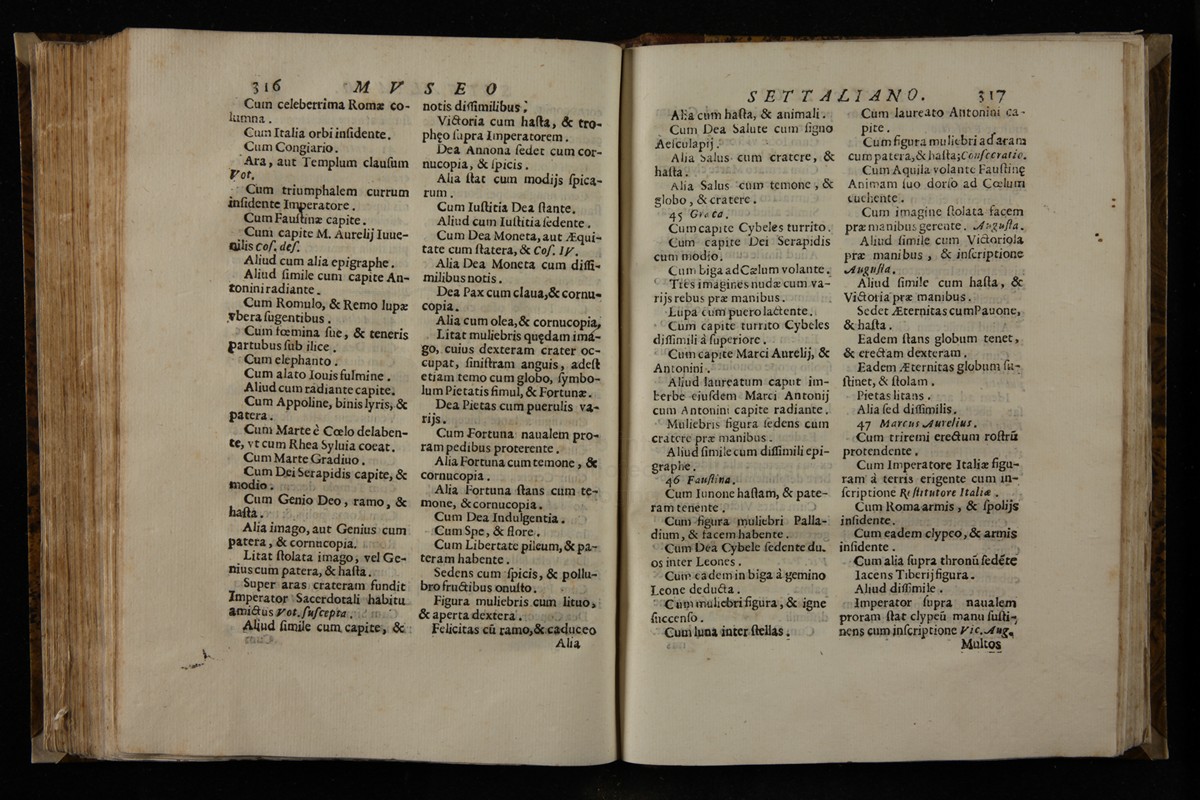 316 M V S E O
Cum celeberrima Romæ co-
lumna.
Cum Italia orbi insidente.
Cum Congiario.
Ara, aut Templum clausum
Vot.
Cum triumphalem currum
insidente Imperatore.
Cum Faustinæ capite.
Cum capite M. Aurelij Iuue-
nilis Cos. des.
Aliud cum alia epigraphe.
Aliud simile cum capite An-
tonini radiante.
Cum Romulo, & Remo lupæ
vbera sugentibus.
Cum fœmina sue, & teneris
partubus sub ilice.
Cum elephanto.
Cum alato Iouis fulmine.
Aliud cum radiante capite.
Cum Appoline, binis lyris, &
patera.
Cum Marte è Cœlo delaben-
te, vt cum Rhea Syluia coeat.
Cum Marte Gradiuo.
Cum Dei Serapidis capite, &
modio.
Cum Genio Deo, ramo, &
hasta.
Alia imago, aut Genius cum
patera, & cornucopia.
Litat stolata imago, vel Ge-
nius cum patera, & hasta.
Super aras crateram fundit
Imperator Sacerdotali habitu
amictus Vot. suscepta.
Aliud simile cum capite, &
notis dissimilibus.
Victoria cum hasta, & tro-
phęo supra Imperatorem.
Dea Annona sedet cum cor-
nucopia, & spicis.
Alia stat cum modijs spica-
rum.
Cum Iustitia Dea stante.
Aliud cum Iustitia sedente.
Cum Dea Moneta, aut Æqui-
tate cum statera, & Cos. IV.
Alia Dea Moneta cum dissi-
milibus notis.
Dea Pax cum claua, & cornu-
copia.
Alia cum olea, & cornucopia,
Litat muliebris quędam ima-
go, cuius dexteram crater oc-
cupat, sinistram anguis, adest
etiam temo cum globo, symbo-
lum Pietatis simul, & Fortunæ.
Dea Pietas cum puerulis va-
rijs.
Cum Fortuna naualem pro-
ram pedibus proterente.
Alia Fortuna cum temone, &
cornucopia.
Alia Fortuna stans cum te-
mone, & cornucopia.
Cum Dea Indulgentia.
Cum Spe, & flore.
Cum Libertate pileum, & pa-
teram habente.
Sedens cum spicis, & pollu-
bro fructibus onusto.
Figura muliebris cum lituo,
& aperta dextera.
Felicitas cū ramo, & caduceo
Alia
SETTALIANO. 317
Alia cum hasta, & animali.
Cum Dea Salute cum signo
Aesculapij.
Alia Salus cum cratere, &
hasta.
Alia Salus cum temone, &
globo, & cratere.
45 Græca.
Cum capite Cybeles turrito.
Cum capite Dei Serapidis
cum modio.
Cum biga ad Cælum volante.
Tres imagines nudæ cum va-
rijs rebus præ manibus.
Lupa cum puero lactente.
Cum capite turrito Cybeles
dissimili à superiore.
Cum capite Marci Aurelij, &
Antonini.
Aliud laureatum caput im-
berbe eiusdem Marci Antonij
cum Antonini capite radiante.
Muliebris figura sedens cum
cratere præ manibus.
Aliud simile cum dissimili epi-
graphe.
46 Faustina.
Cum Iunone hastam, & pate-
ram tenente.
Cum figura muliebri Palla-
dium, & facem habente.
Cum Dea Cybele sedente du.
os inter Leones.
Cum eadem in biga à gemino
Leone deducta.
Cum muliebri figura, & igne
succenso.
Cum luna inter stellas.
Cum laureato Antonini ca-
pite.
Cum figura muliebri ad aram
cum patera, & hasta; Consecratio.
Cum Aquila volante Faustinę
Animam suo dorso ad Cœlum
euehente.
Cum imagine stolata facem
præ manibus gerente. Augusta.
Aliud simile cum Victoriola
præ manibus, & inscriptione
Augusta.
Aliud simile cum hasta, &
Victoria præ manibus.
Sedet Æternitas cum Pauone,
& hasta.
Eadem stans globum tenet,
& erectam dexteram.
Eadem Æternitas globum su-
stinet, & stolam.
Pietas litans.
Alia sed dissimilis.
47 Marcus Aurelius.
Cum triremi erectum rostrū
protendente.
Cum Imperatore Italiæ figu-
ram à terris erigente cum in-
scriptione Restitutore Italiæ.
Cum Roma armis, & spolijs
insidente.
Cum eadem clypeo, & armis
insidente.
Cum alia supra thronū sedēte
Iacens Tiberij figura.
Aliud dissimile.
Imperator supra naualem
proram stat clypeū manu susti-
nens cum inscriptione Vic. Aug.
Multos